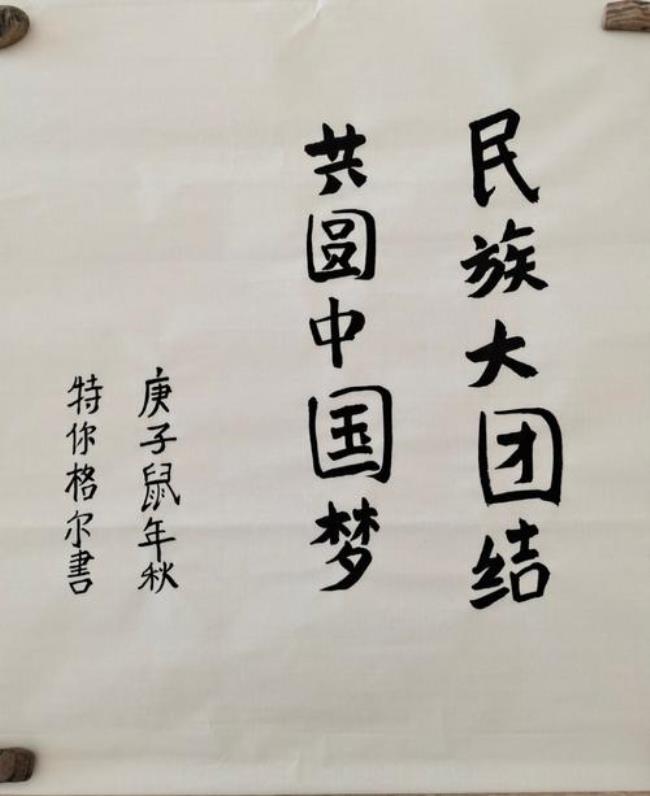 民族大团结
共圆中国梦
庚子鼠年秋
特你格尔書